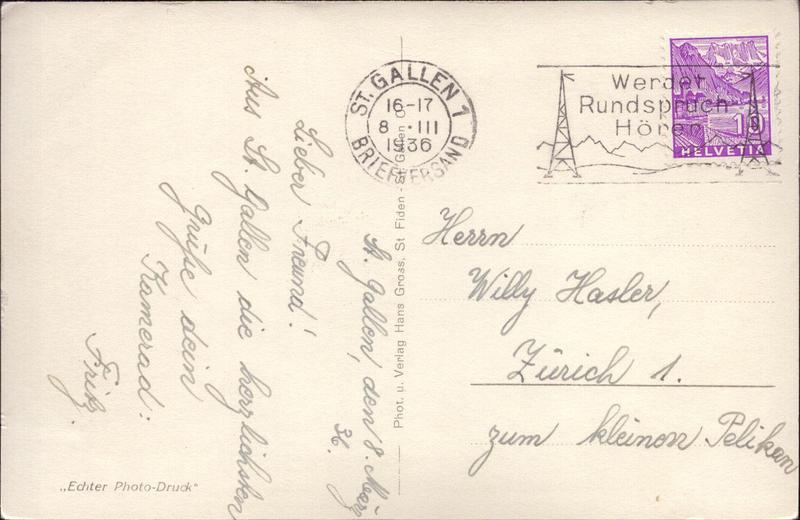 St. Gallen, den 8. März
36.
Lieber Freund!
Aus St. Gallen die herzlichsten
Grüße dein
Kamerad:
Fritz.
„Echter Photo-Druck“
Phot. u. Verlag Hans Gross, St Fiden - St. Gallen O
ST. GALLEN 1
16-17
8. III
1936
BRIEFVERSAND
Werdet
Rundspruch
Hörer
10
HELVETIA
Herrn
Willy Hasler,
Zürich 1.
zum kleinen Pelikan